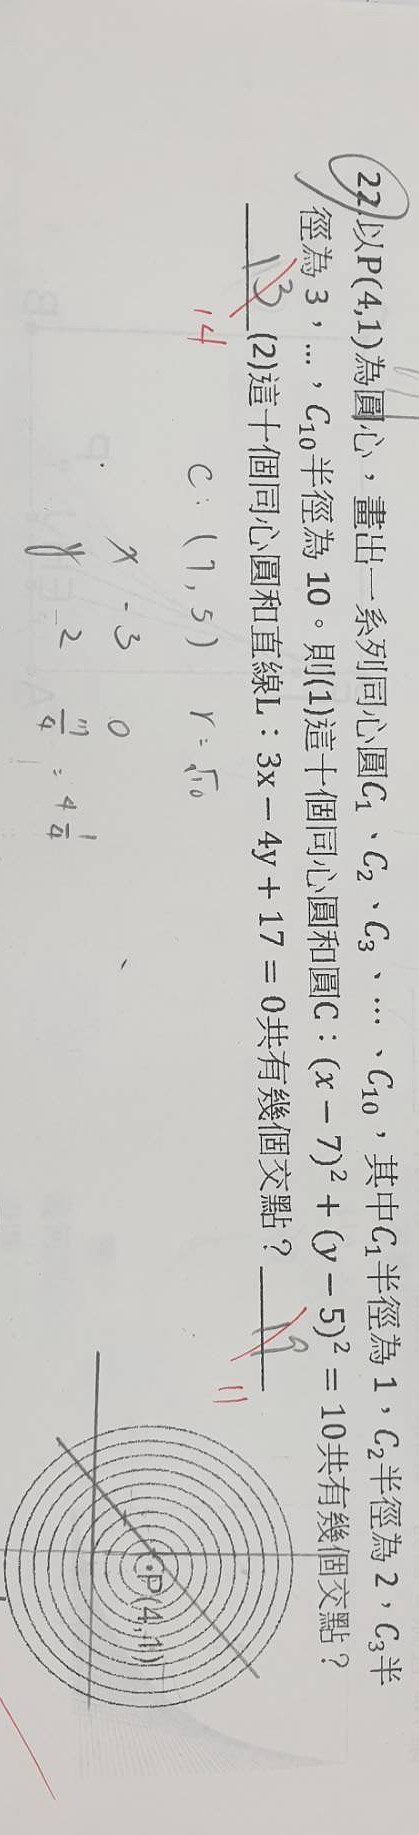 22.以P(4,1)為圓心，畫出一系列同心圓C₁、C₂、C₃、…、C₁₀，其中C₁半徑為1，C₂半徑為2，C₃半
徑為3，…，C₁₀半徑為10。則(1)這十個同心圓和圓C：(x−7)²+(y−5)²=10共有幾個交點？
13 14 (2)這十個同心圓和直線L：3x−4y+17=0共有幾個交點？ 19 11
C:(7,5) r=√10
x -3 0
y 2 17/4 = 4 1/4
P(4,1)